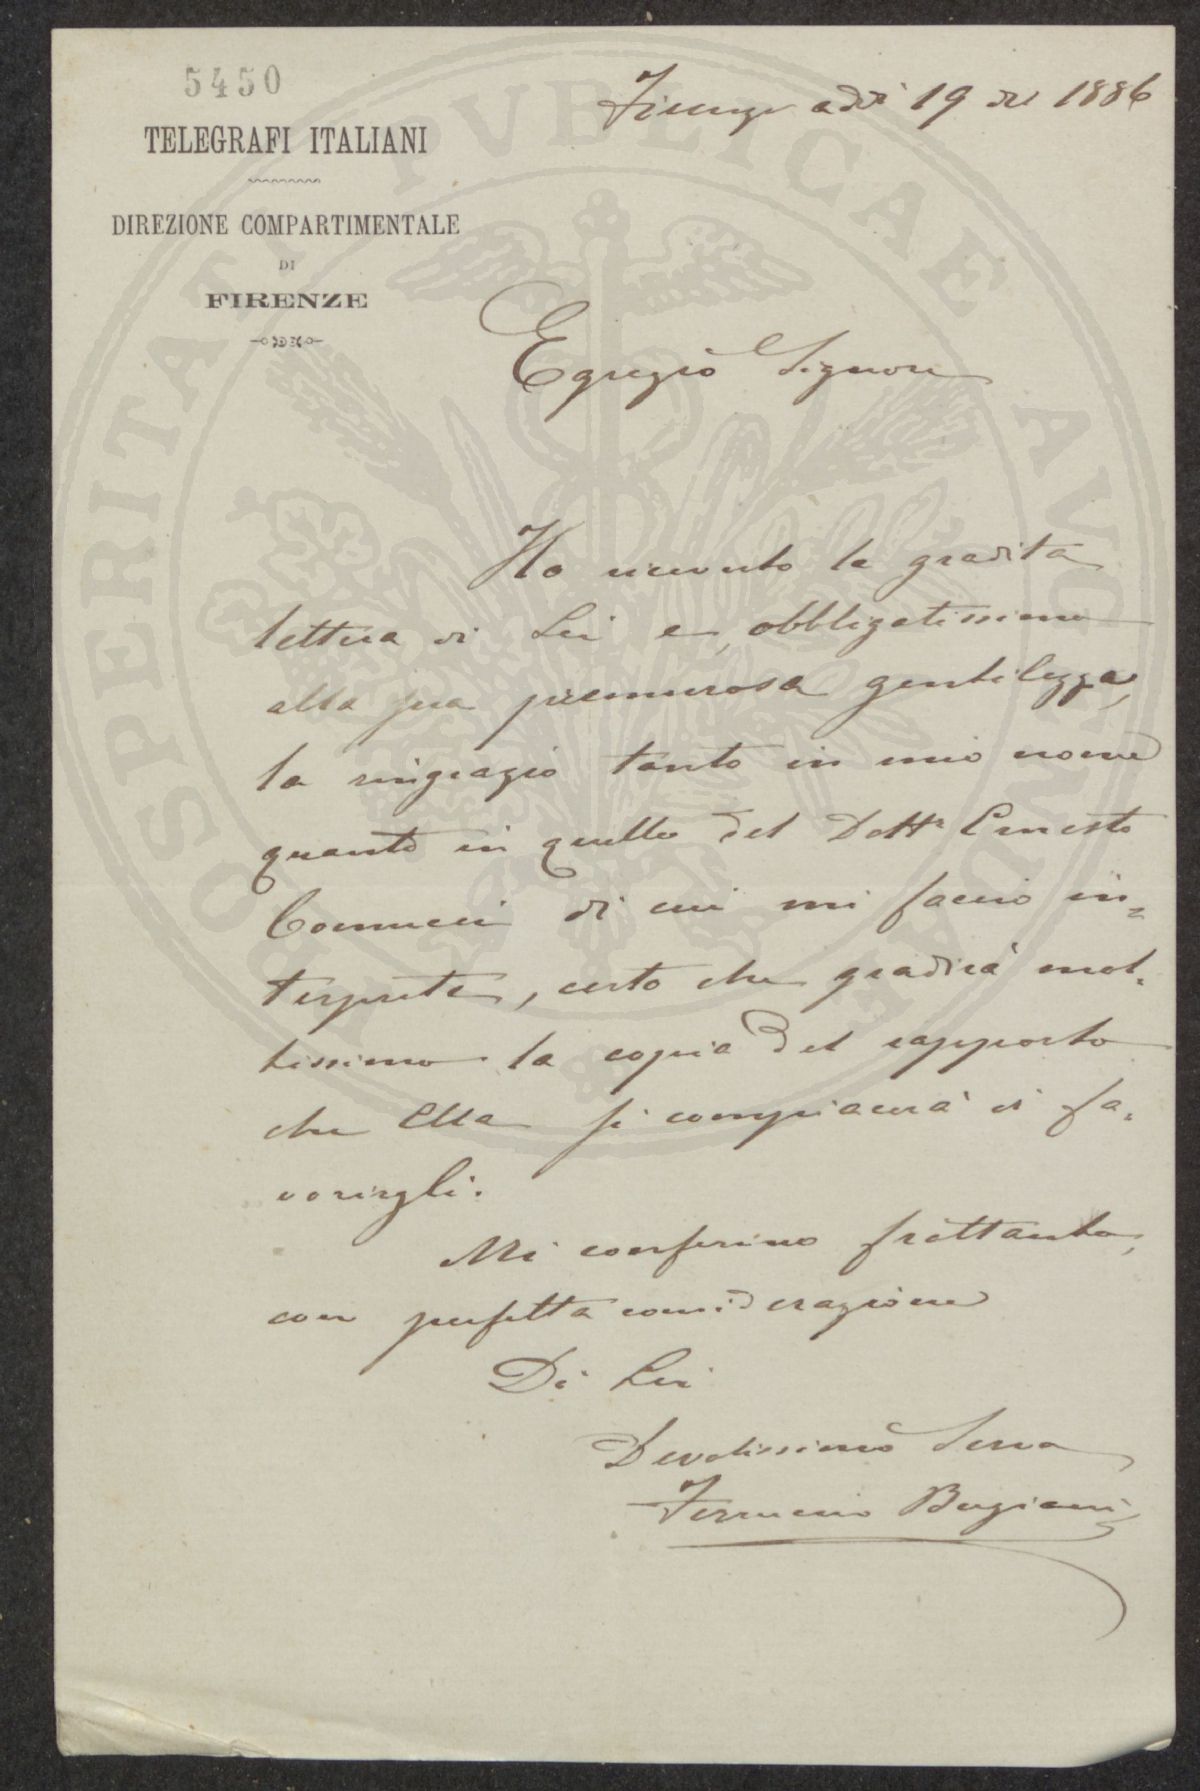 5450
TELEGRAFI ITALIANI
DIREZIONE COMPARTIMENTALE
DI
FIRENZE
Firenze addì 19 del 1886
Egregio Signore
Ho ricevuto la gradita
lettera di Lei e, obbligatissimo
alla sua premurosa gentilezza,
la ringrazio tanto in mio nome
quanto in quello del Dottr Ernesto
di cui mi faccio in=
terprete, certo che gradirà mol-
tissimo la copia del rapporto
che Ella si compiacerà di fa-
vorirgli.
Mi confermo frattanto,
con perfetta considerazione
Di Lei
Devotissimo Servo
Ferruccio Bugiani
PROSPERITATI PVBLICAE AVGENDAE